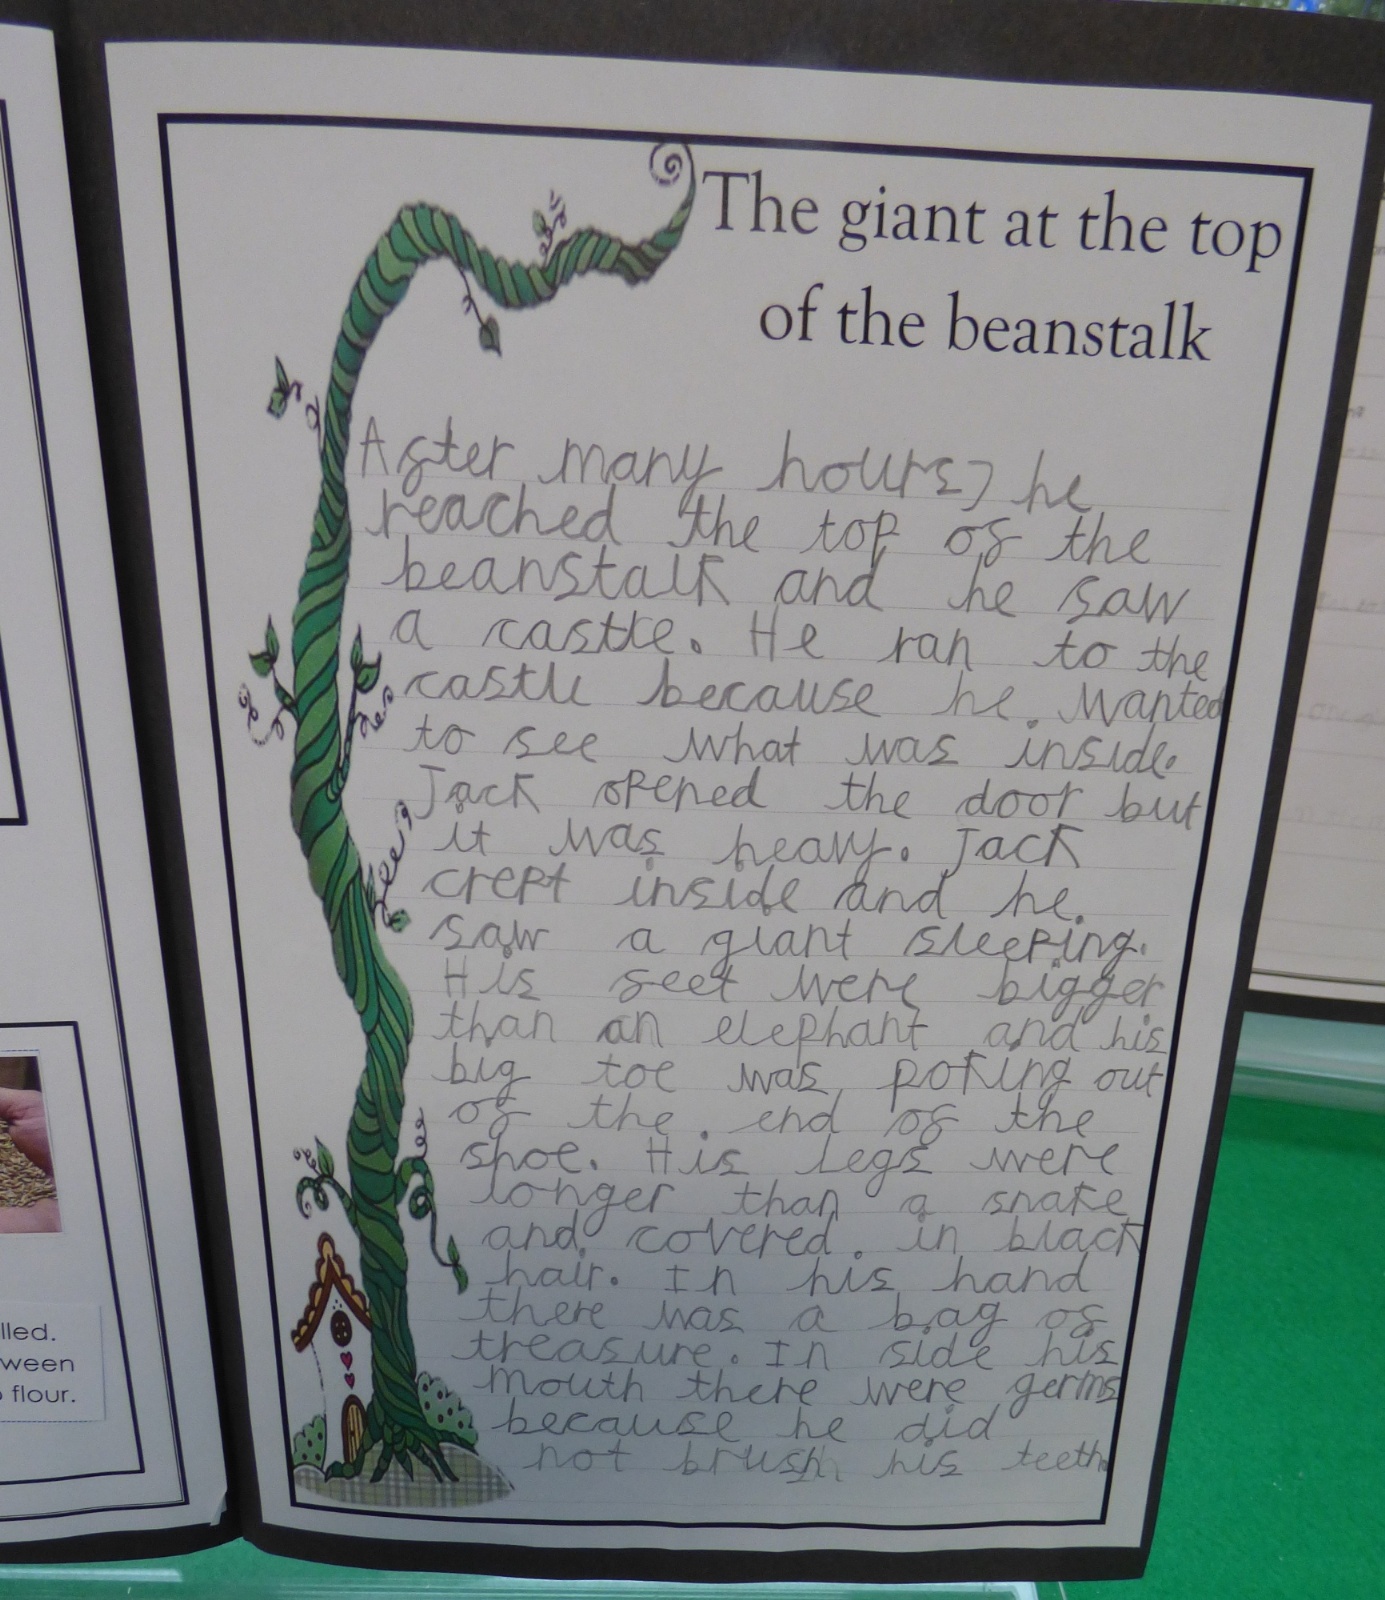 The giant at the top
of the beanstalk
After many hours, he
reached the top of the
beanstalk and he saw
a castle. He ran to the
castle because he wanted
to see what was inside.
Jack opened the door but
it was heavy. Jack
crept inside and he
saw a giant sleeping.
His feet were bigger
than an elephant and his
big toe was poking out
of the end of the
shoe. His legs were
longer than a snake
and covered in black
hair. In his hand
there was a bag of
treasure. In side his
mouth there were germs
because he did
not brush his teeth.
lled.
ween
flour.